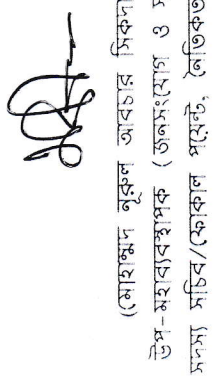 (মোহাম্মদ নূরুল আবছার সিকদা
উপ-মহাব্যবস্থাপক (জনসংযোগ ও স
সদস্য সচিব/ফোকাল পয়েন্ট, নৈতিকত